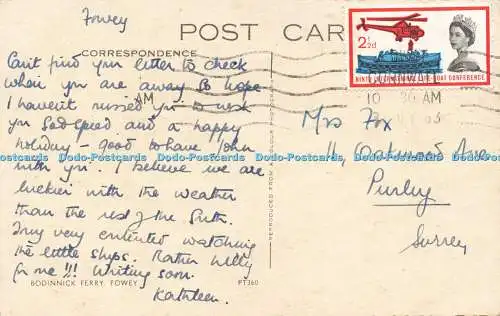 Fowey
POST CARD
CORRESPONDENCE
Can't find your letter to check
when you are away so hope
I haven't missed you to wish
you God speed and a happy
holiday - good to have John
with you. I believe we are
luckier with the weather
than the rest of the South.
Truly very contented watching
the little ships. Rather
for me!!! Writing soon.
Kathleen.
BODINNICK FERRY, FOWEY
PT360
REPRODUCED FROM A COLOUR
2½d
NINTH INTERNATIONAL LIFE-BOAT CONFERENCE
10 AM
AM
Mrs Fox
11, Oakwood Ave
Purley
Surrey
Dodo-Postcards Dodo-Postcards Dodo-Postcards Dodo-Postcards Dodo-Postcards Dodo-Postcards Dodo-Postcards Dodo-Postcards